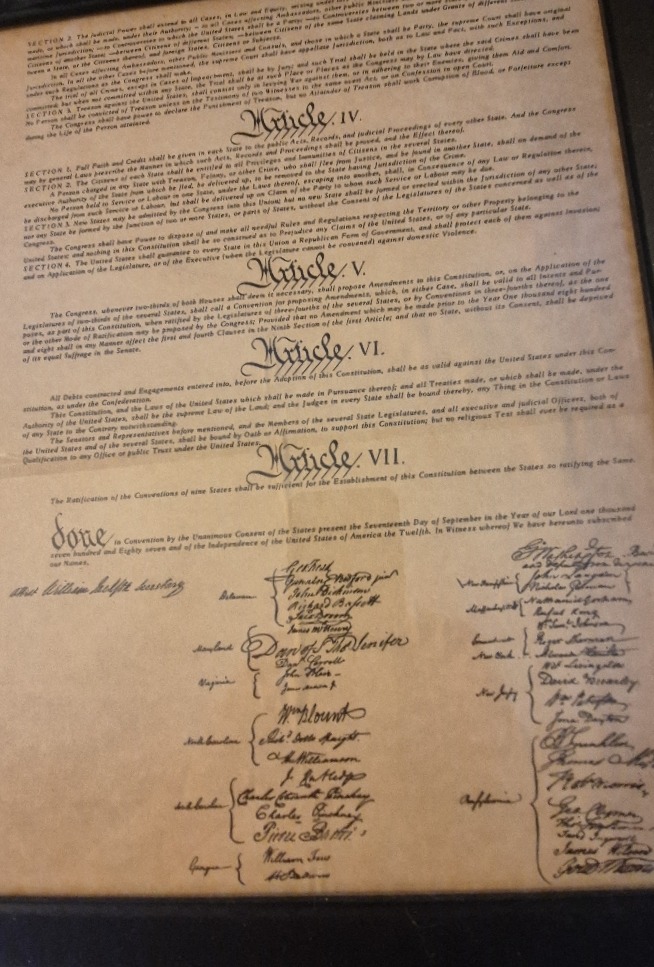 SECTION 2. The Judicial Power shall extend to all Cases, in Law and Equity, arising under
made, or which shall be made, under their Authority;—to all Cases affecting Ambassadors, other public Ministers
maritime Jurisdiction;—to Controversies to which the United States shall be a Party;—to Controversies between two or more
Citizens of another State;—between Citizens of different States,—between Citizens of the same State claiming Lands under Grants of different
tween a State, or the Citizens thereof, and foreign States, Citizens or Subjects.
In all Cases affecting Ambassadors, other public Ministers and Consuls, and those in which a State shall be Party, the supreme Court shall have original
Jurisdiction. In all the other Cases before mentioned, the supreme Court shall have appellate Jurisdiction, both as to Law and Fact, with such Exceptions, and
under such Regulations as the Congress shall make.
The trial of all Crimes, except in Cases of Impeachment, shall be by Jury; and such Trial shall be held in the State where the said Crimes shall have been
committed; but when not committed within any State, the Trial shall be at such Place or Places as the Congress may by Law have directed.
SECTION 3. Treason against the United States, shall consist only in levying War against them, or in adhering to their Enemies, giving them Aid and Comfort.
No Person shall be convicted of Treason unless on the Testimony of two Witnesses to the same overt Act, or on Confession in open Court.
The Congress shall have power to declare the Punishment of Treason, but no Attainder of Treason shall work Corruption of Blood, or Forfeiture except
during the Life of the Person attainted.
Article. IV.
SECTION 1. Full Faith and Credit shall be given in each State to the public Acts, Records, and judicial Proceedings of every other State. And the Congress
may by general Laws prescribe the Manner in which such Acts, Records and Proceedings shall be proved, and the Effect thereof.
SECTION 2. The Citizens of each State shall be entitled to all Privileges and Immunities of Citizens in the several States.
A Person charged in any State with Treason, Felony, or other Crime, who shall flee from Justice, and be found in another State, shall on demand of the
executive Authority of the State from which he fled, be delivered up, to be removed to the State having Jurisdiction of the Crime.
No Person held to Service or Labour in one State, under the Laws thereof, escaping into another, shall, in Consequence of any Law or Regulation therein,
be discharged from such Service or Labour, but shall be delivered up on Claim of the Party to whom such Service or Labour may be due.
SECTION 3. New States may be admitted by the Congress into this Union; but no new State shall be formed or erected within the Jurisdiction of any other State;
nor any State be formed by the Junction of two or more States, or parts of States, without the Consent of the Legislatures of the States concerned as well as of the
Congress.
The Congress shall have Power to dispose of and make all needful Rules and Regulations respecting the Territory or other Property belonging to the
United States; and nothing in this Constitution shall be so construed as to Prejudice any Claims of the United States, or of any particular State.
SECTION 4. The United States shall guarantee to every State in this Union a Republican Form of Government, and shall protect each of them against Invasion;
and on Application of the Legislature, or of the Executive (when the Legislature cannot be convened) against domestic Violence.
Article. V.
The Congress, whenever two-thirds of both Houses shall deem it necessary, shall propose Amendments to this Constitution, or, on the Application of the
Legislatures of two-thirds of the several States, shall call a Convention for proposing Amendments, which, in either Case, shall be valid to all Intents and Pur-
poses, as part of this Constitution, when ratified by the Legislatures of three-fourths of the several States, or by Conventions in three-fourths thereof, as the one
or the other Mode of Ratification may be proposed by the Congress; Provided that no Amendment which may be made prior to the Year One thousand eight hundred
and eight shall in any Manner affect the first and fourth Clauses in the Ninth Section of the first Article; and that no State, without its Consent, shall be deprived
of its equal Suffrage in the Senate.
Article. VI.
All Debts contracted and Engagements entered into, before the Adoption of this Constitution, shall be as valid against the United States under this Con-
stitution, as under the Confederation.
This Constitution, and the Laws of the United States which shall be made in Pursuance thereof; and all Treaties made, or which shall be made, under the
Authority of the United States, shall be the supreme Law of the Land; and the Judges in every State shall be bound thereby, any Thing in the Constitution or Laws
of any State to the Contrary notwithstanding.
The Senators and Representatives before mentioned, and the Members of the several State Legislatures, and all executive and judicial Officers, both of
the United States and of the several States, shall be bound by Oath or Affirmation, to support this Constitution; but no religious Test shall ever be required as a
Qualification to any Office or public Trust under the United States.
Article. VII.
The Ratification of the Conventions of nine States shall be sufficient for the Establishment of this Constitution between the States so ratifying the Same.
done in Convention by the Unanimous Consent of the States present the Seventeenth Day of September in the Year of our Lord one thousand
seven hundred and Eighty seven and of the Independence of the United States of America the Twelfth. In Witness whereof We have hereunto subscribed
our Names,
Attest William Jackson Secretary
Delaware
Geo: Read
Gunning Bedford jun
John Dickinson
Richard Bassett
Jaco: Broom
Maryland
James McHenry
Dan of St Thos Jenifer
Danl Carroll
Virginia
John Blair—
James Madison Jr
North Carolina
Wm Blount
Richd Dobbs Spaight.
Hu Williamson
South Carolina
J. Rutledge
Charles Cotesworth Pinckney
Charles Pinckney
Pierce Butler
Georgia
William Few
Abr Baldwin
Go Washington
and deputy from
New Hampshire
John Langdon
Nicholas Gilman
Massachusetts
Nathaniel Gorham
Rufus King
Connecticut
Wm Saml Johnson
Roger Sherman
New York
New Jersey
Wil Livingston
David Brearley
Wm Paterson
Jona Dayton
Pensylvania
B Franklin
Thomas
Robt Morris
Geo. Clymer
Jared Ingersoll
James Wilson